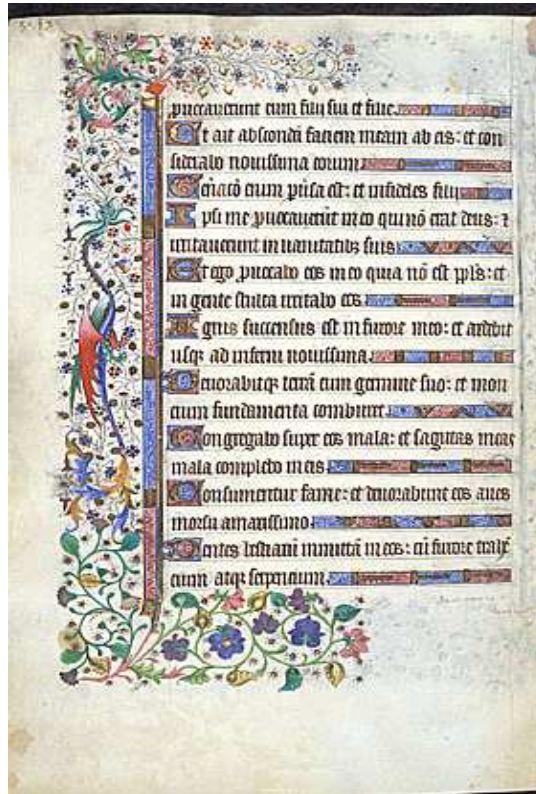 puocauerunt eum filij sui et filie.
Et ait abscondā faciem meam ab eis: et con
siderabo nouissima eorum.
Gen̄acō enim puersa est: et infideles filij
Ipsi me puocauerūt in eo qui nō erat deus: ⁊
irritauerunt in uanitatibꝫ suis
Et ego puocabo eos in eo quia nō est ppl̄s: et
in gente stulta irritabo eos.
Ignis succensus est in furore meo: et ardebit
usqꝫ ad inferni nouissima.
Deuorabitqꝫ terrā cum germine suo: et mon
cium fundamenta comburet.
Congregabo super eos mala: et sagittas meas
mala complebo in eis.
Consumentur fame: et deuorabunt eos aues
morsu amarissimo.
Dentes bestiarū inmittā in eos: cū furore trahē
cium atqꝫ serpencium.